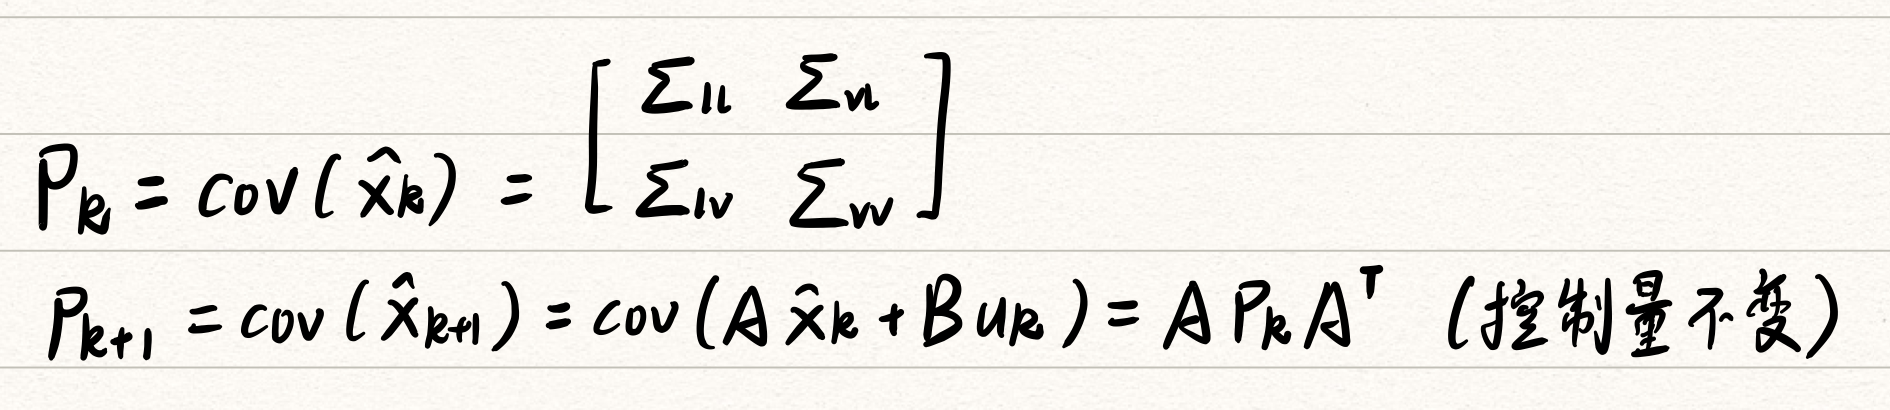 P_k = cov(x̂_k) = [Σ_ll Σ_vl; Σ_lv Σ_vv]
P_{k+1} = cov(x̂_{k+1}) = cov(A x̂_k + B u_k) = A P_k A^T (控制量不变)